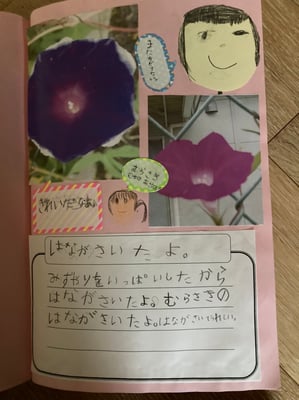 きれいだなあ。
はながさいたよ。
みずやりをいっぱいしたから
はながさいたよ。むらさきの
はながさいたよ。はながさいてうれしい。